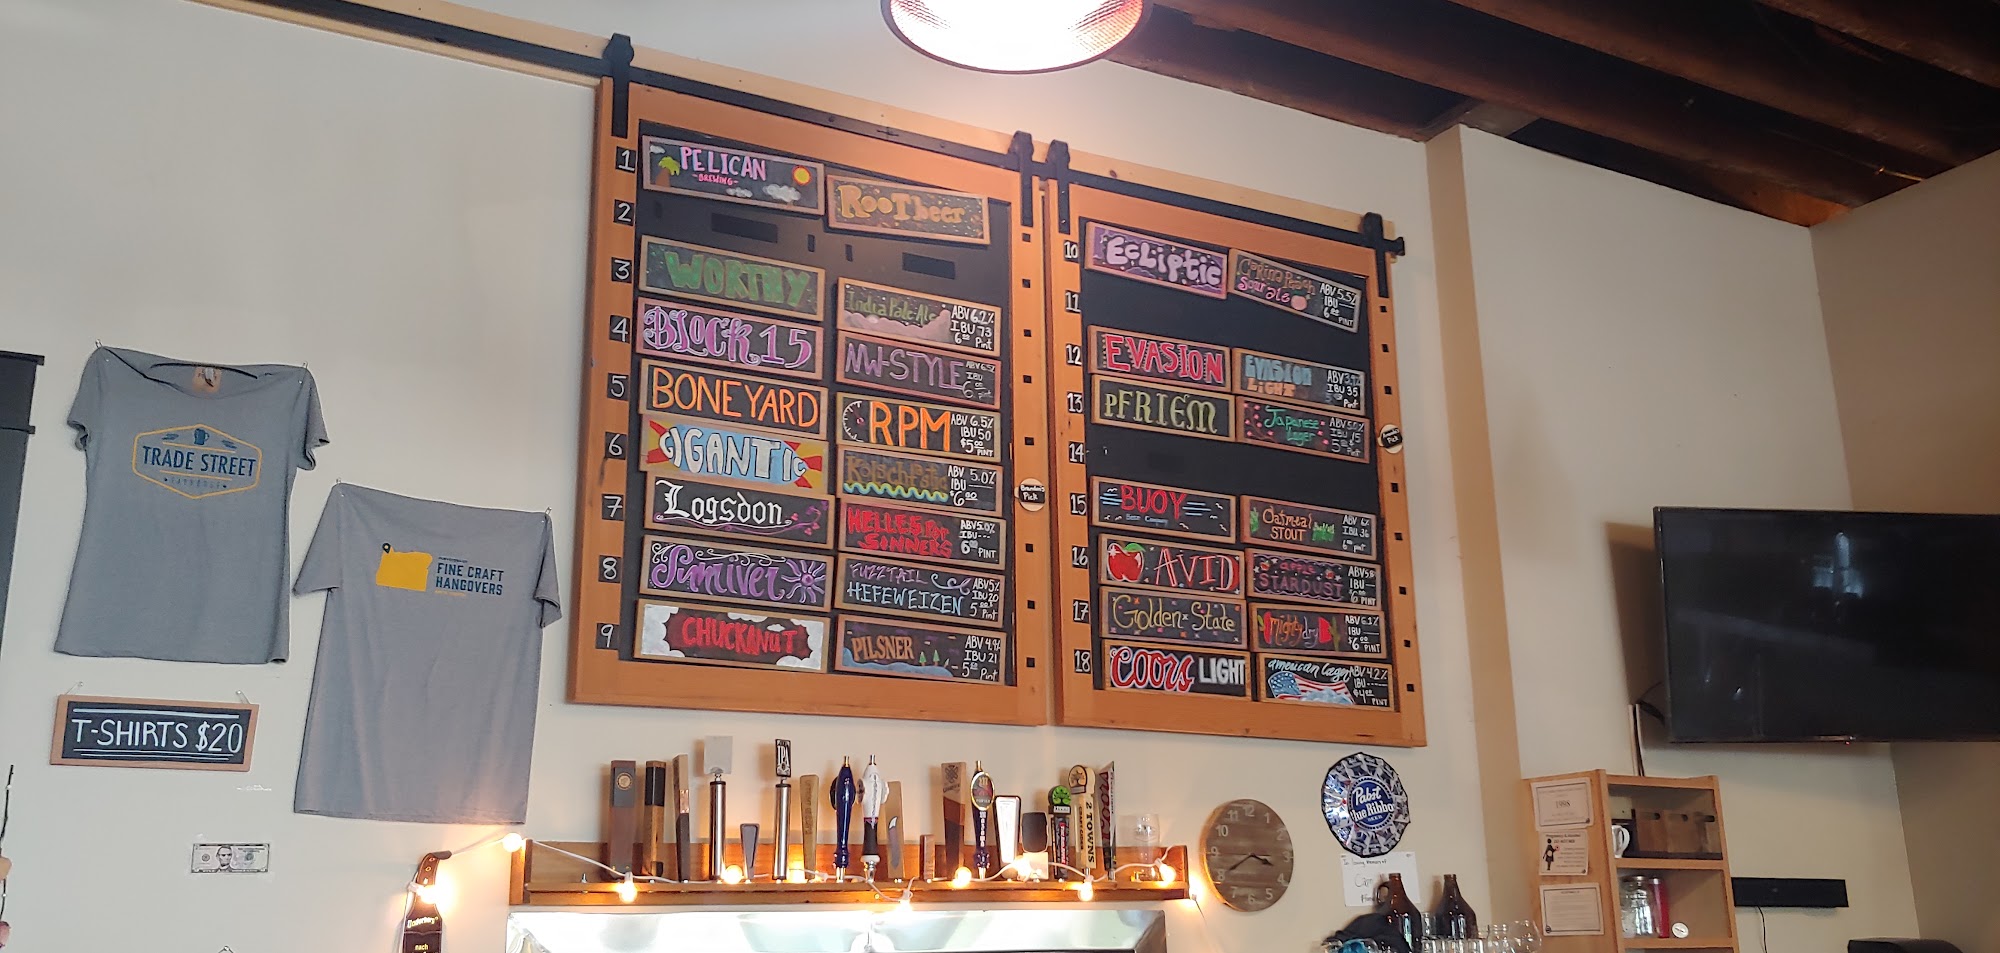 1 PELICAN
-BREWING-
RooTbeer
2
3 WORTHY
India Pale Ale ABV 6.2%
IBU 73
6.00 Pint
4 BLOCK 15
NW-STYLE ABV 6.5%
IBU
5 BONEYARD
RPM ABV 6.5%
IBU 50
$5.00
PINT
6 GIGANTIC
ABV 5.0%
IBU
$6.00
7 Logsdon
HELLES FOR
SINNERS
ABV 5.0%
IBU ---
6.00 PINT
8 Sunriver
FUZZTAIL
HEFEWEIZEN
ABV 5%
IBU 20
5.00
Pint
9 CHUCKANUT
PILSNER ABV 4.9%
IBU 21
5.50 Pint
Brandon's
Pick
10 Ecliptic
Sour ale
ABV 5.5%
IBU
6.00
PINT
11
12 EVASION
EVASION
LIGHT
ABV 3.9%
IBU 35
Pint
13 pFRIEM
Japanese
Lager
IBU 15
5.00
Pint
Pick
14
15 BUOY
Beer Company
Oatmeal
STOUT
ABV 6%
IBU 36
6.00 pint
16 AVID
apple
STARDUST
IBU
PINT
17 Golden State
mighty dry
ABV 6.1%
IBU
$6.00
PINT
18 COORS LIGHT
american lager ABV 4.2%
IBU ----
$4.00
PINT
TRADE STREET
TAPHOUSE
FINE CRAFT
HANGOVERS
T-SHIRTS $20
IPA
2 TOWNS
Pabst
Blue Ribbon
BEER
In Loving Memory of
1998
nach
10 11 12 1 2 3 4 5 6 7 8 9